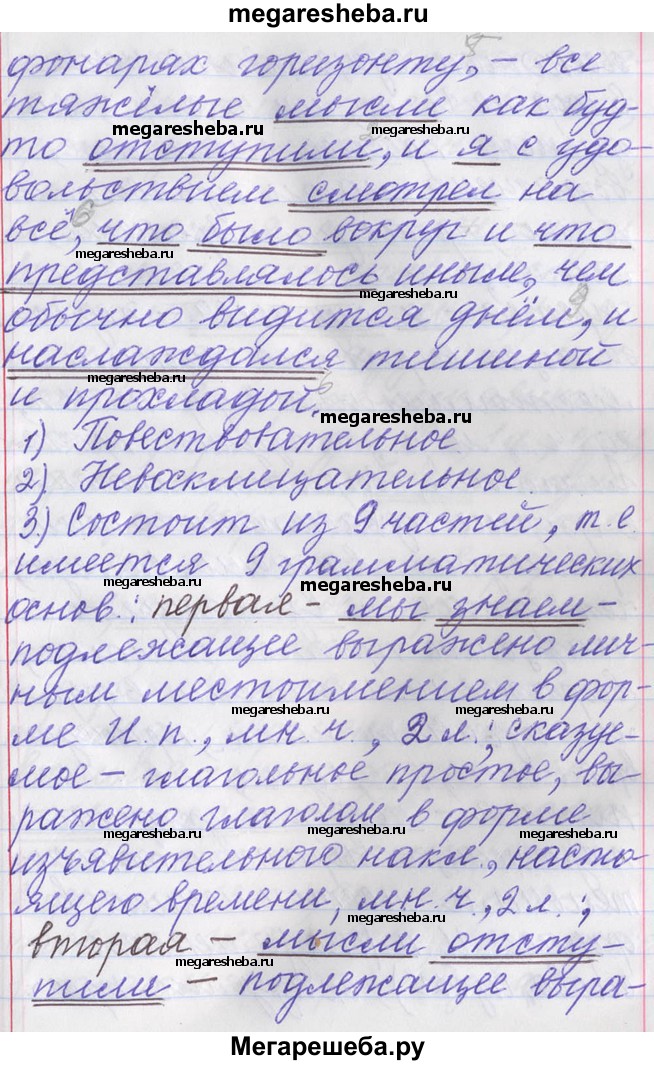 megaresheba.ru
фонарях горизонту, – все
тяжёлые мысли как буд-
megaresheba.ru megaresheba.ru
то отступили, и я с удо-
вольствием смотрел на
всё, что было вокруг и что
megaresheba.ru
представлялось иным, чем
megaresheba.ru
обычно видится днём, и
наслаждался тишиной
megaresheba.ru
и прохладой.
megaresheba.ru
1) Повествовательное.
2) Невосклицательное.
3) Состоит из 9 частей, т.е.
имеется 9 грамматических
megaresheba.ru megaresheba.ru
основ.: первая – мы знаем –
подлежащее выражено лич-
ным местоимением в фор-
megaresheba.ru megaresheba.ru
ме И.п., мн.ч., 2 л.; сказуе-
мое – глагольное простое, вы-
ражено глаголом в форме
megaresheba.ru megaresheba.ru megaresheba.ru
изъявительного накл., насто-
ящего времени, мн.ч., 2 л.;
megaresheba.ru
вторая – мысли отсту-
megaresheba.ru
пили – подлежащее выра-
Мегарешеба.ру